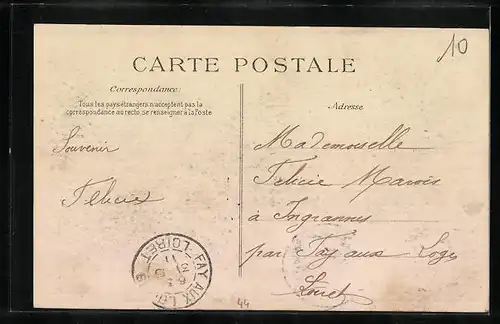 10
CARTE POSTALE
Correspondance:
Tous les pays étrangers n'acceptent pas la
correspondance au recto, se renseigner à la Poste
Adresse
Souvenir
Félicie
Mademoiselle
Félicie Marois
à Ingrannes
par Fay aux Loges
Loiret
FAY AUX LOGES LOIRET
44